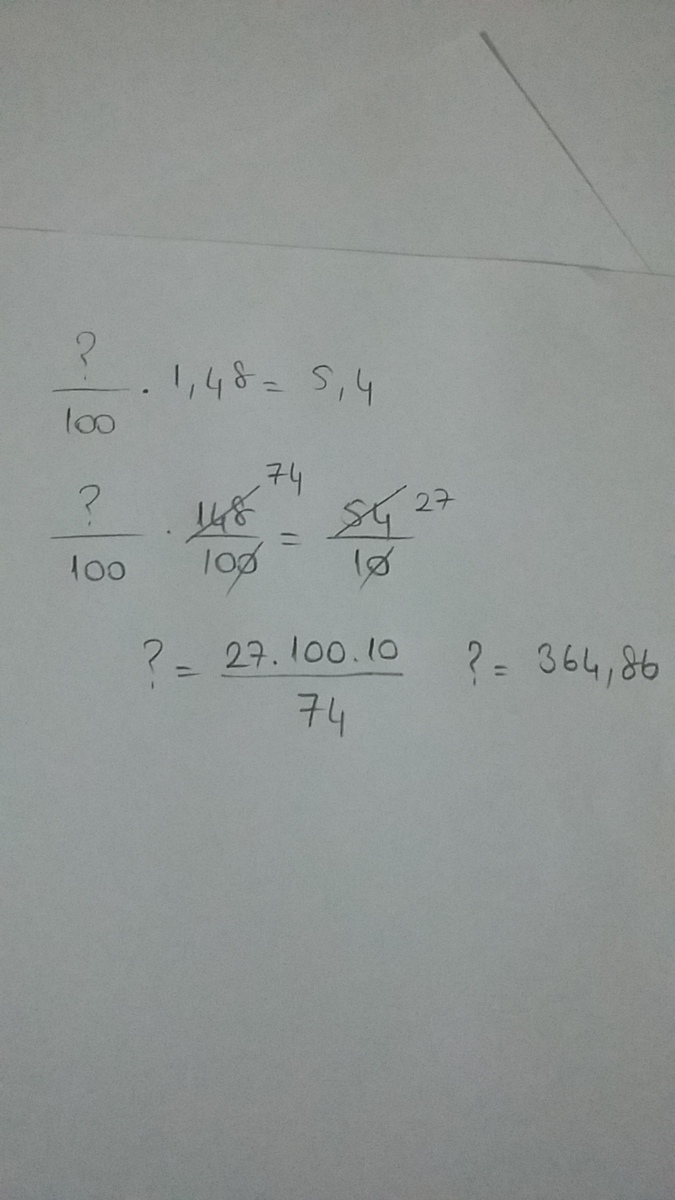 ?/100 . 1,48 = 5,4
?/100 . 148/100 74 = 54/10 27
? = 27.100.10/74 ? = 364,86